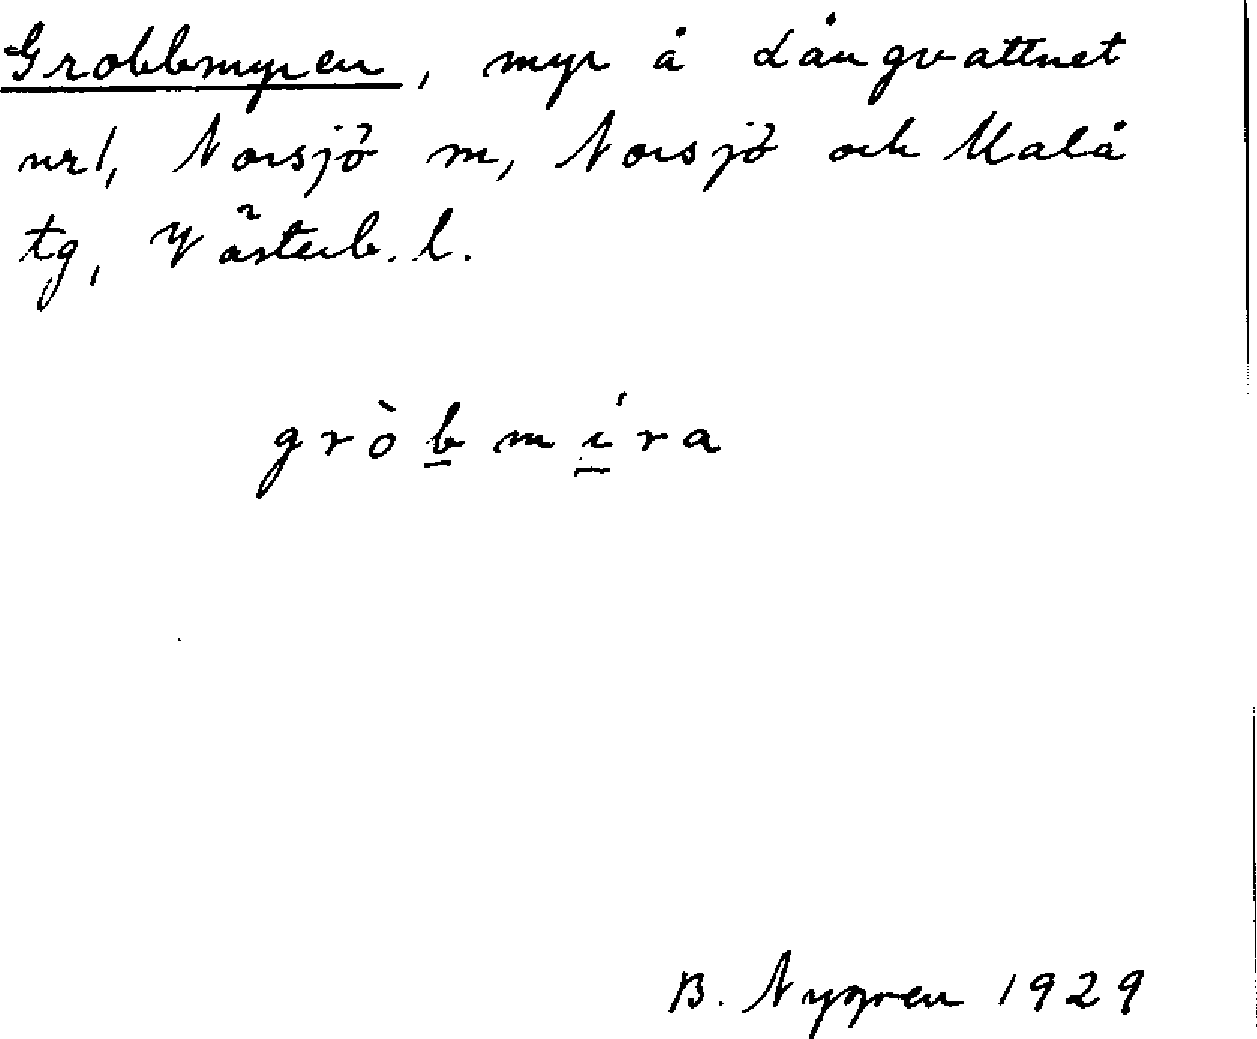 Grobbmyren, myr å Långvattnet
nr 1, Norsjö m, Norsjö och Malå
tg, Västerb. l.
gròb̲mí̲ra
B. Nygren 1929